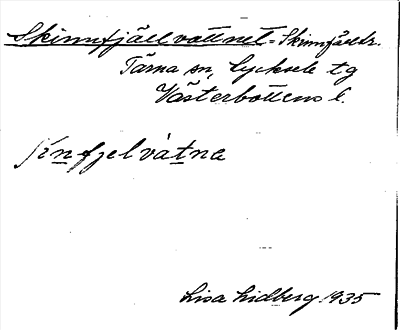 Skinnfjällvattnet = Skinnfjälltr.
Tärna sn, Lycksele tg
Västerbottens l.
ʃinfjelvatna
Lisa Lidberg 1935